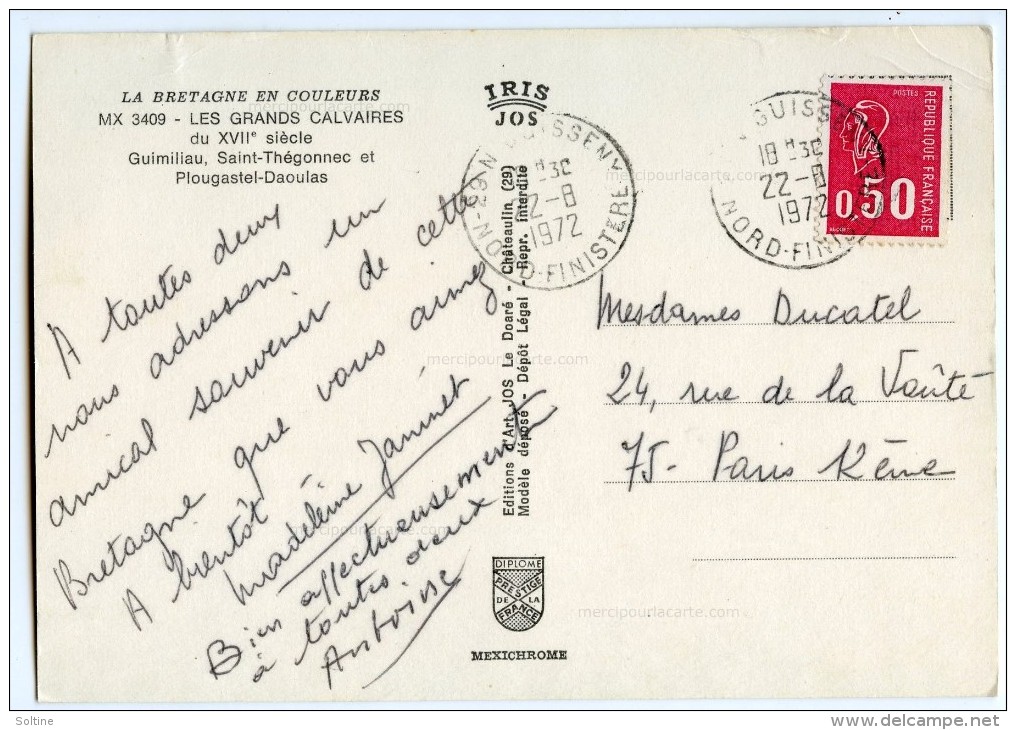 LA BRETAGNE EN COULEURS
MX 3409 - LES GRANDS CALVAIRES
du XVIIe siècle
Guimiliau, Saint-Thégonnec et
Plougastel-Daoulas
IRIS
JOS
29-N GUISSENY
18 H30
22-8
1972
NORD-FINISTERE
GUISS
18 H30
22-8
1972
NORD-FINIS RE
POSTES
REPUBLIQUE FRANÇAISE
0,50
A toutes deux
nous adressons un
amical souvenir de cette
Bretagne que vous aimez
A bientôt
Madeleine Jaminet
Bien affectueusement
à toutes deux
Editions d'Art JOS Le Doaré - Châteaulin (29)
Modèle déposé - Dépôt Légal - Repr. Interdite
Mesdames Ducatel
24, rue de la Voûte
75 - Paris XIIème
DIPLOME
PRESTIGE
DE LA
FRANCE
MEXICHROME
mercipourlacarte.com
mercipourlacarte.com
mercipourlacarte.com
mercipourlacarte.com
mercipourlacarte.com
mercipourlacarte.com
mercipourlacarte.com
Soltine
delcampe.net